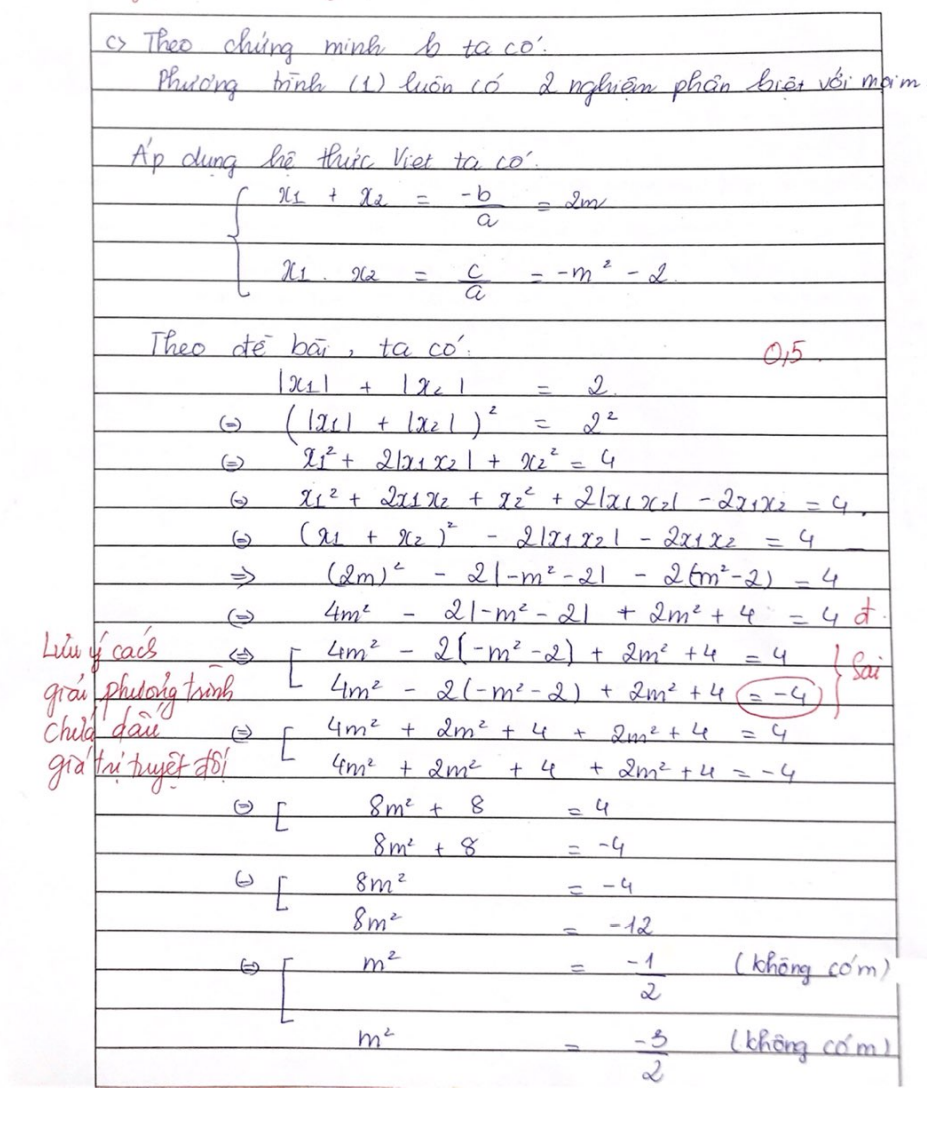 c> Theo chứng minh b ta có:
Phương trình (1) luôn có 2 nghiệm phân biệt với mọi m
Áp dụng hệ thức Viet ta có:
x₁ + x₂ = -b/a = 2m
x₁ . x₂ = c/a = -m² - 2
Theo đề bài, ta có:
0,5
|x₁| + |x₂| = 2
(=) (|x₁| + |x₂|)² = 2²
(=) x₁² + 2|x₁x₂| + x₂² = 4
(=) x₁² + 2x₁x₂ + x₂² + 2|x₁x₂| - 2x₁x₂ = 4
(=) (x₁ + x₂)² - 2|x₁x₂| - 2x₁x₂ = 4
=> (2m)² - 2|-m² - 2| - 2(-m² - 2) = 4
(=) 4m² - 2|-m² - 2| + 2m² + 4 = 4 đ
Lưu ý cách giải phương trình chứa dấu giá trị tuyệt đối
(=) [ 4m² - 2(-m² - 2) + 2m² + 4 = 4
4m² - 2(-m² - 2) + 2m² + 4 = -4
Sai
(=) [ 4m² + 2m² + 4 + 2m² + 4 = 4
4m² + 2m² + 4 + 2m² + 4 = -4
(=) [ 8m² + 8 = 4
8m² + 8 = -4
(=) [ 8m² = -4
8m² = -12
(=) [ m² = -1/2 (không có m)
m² = -3/2 (không có m)